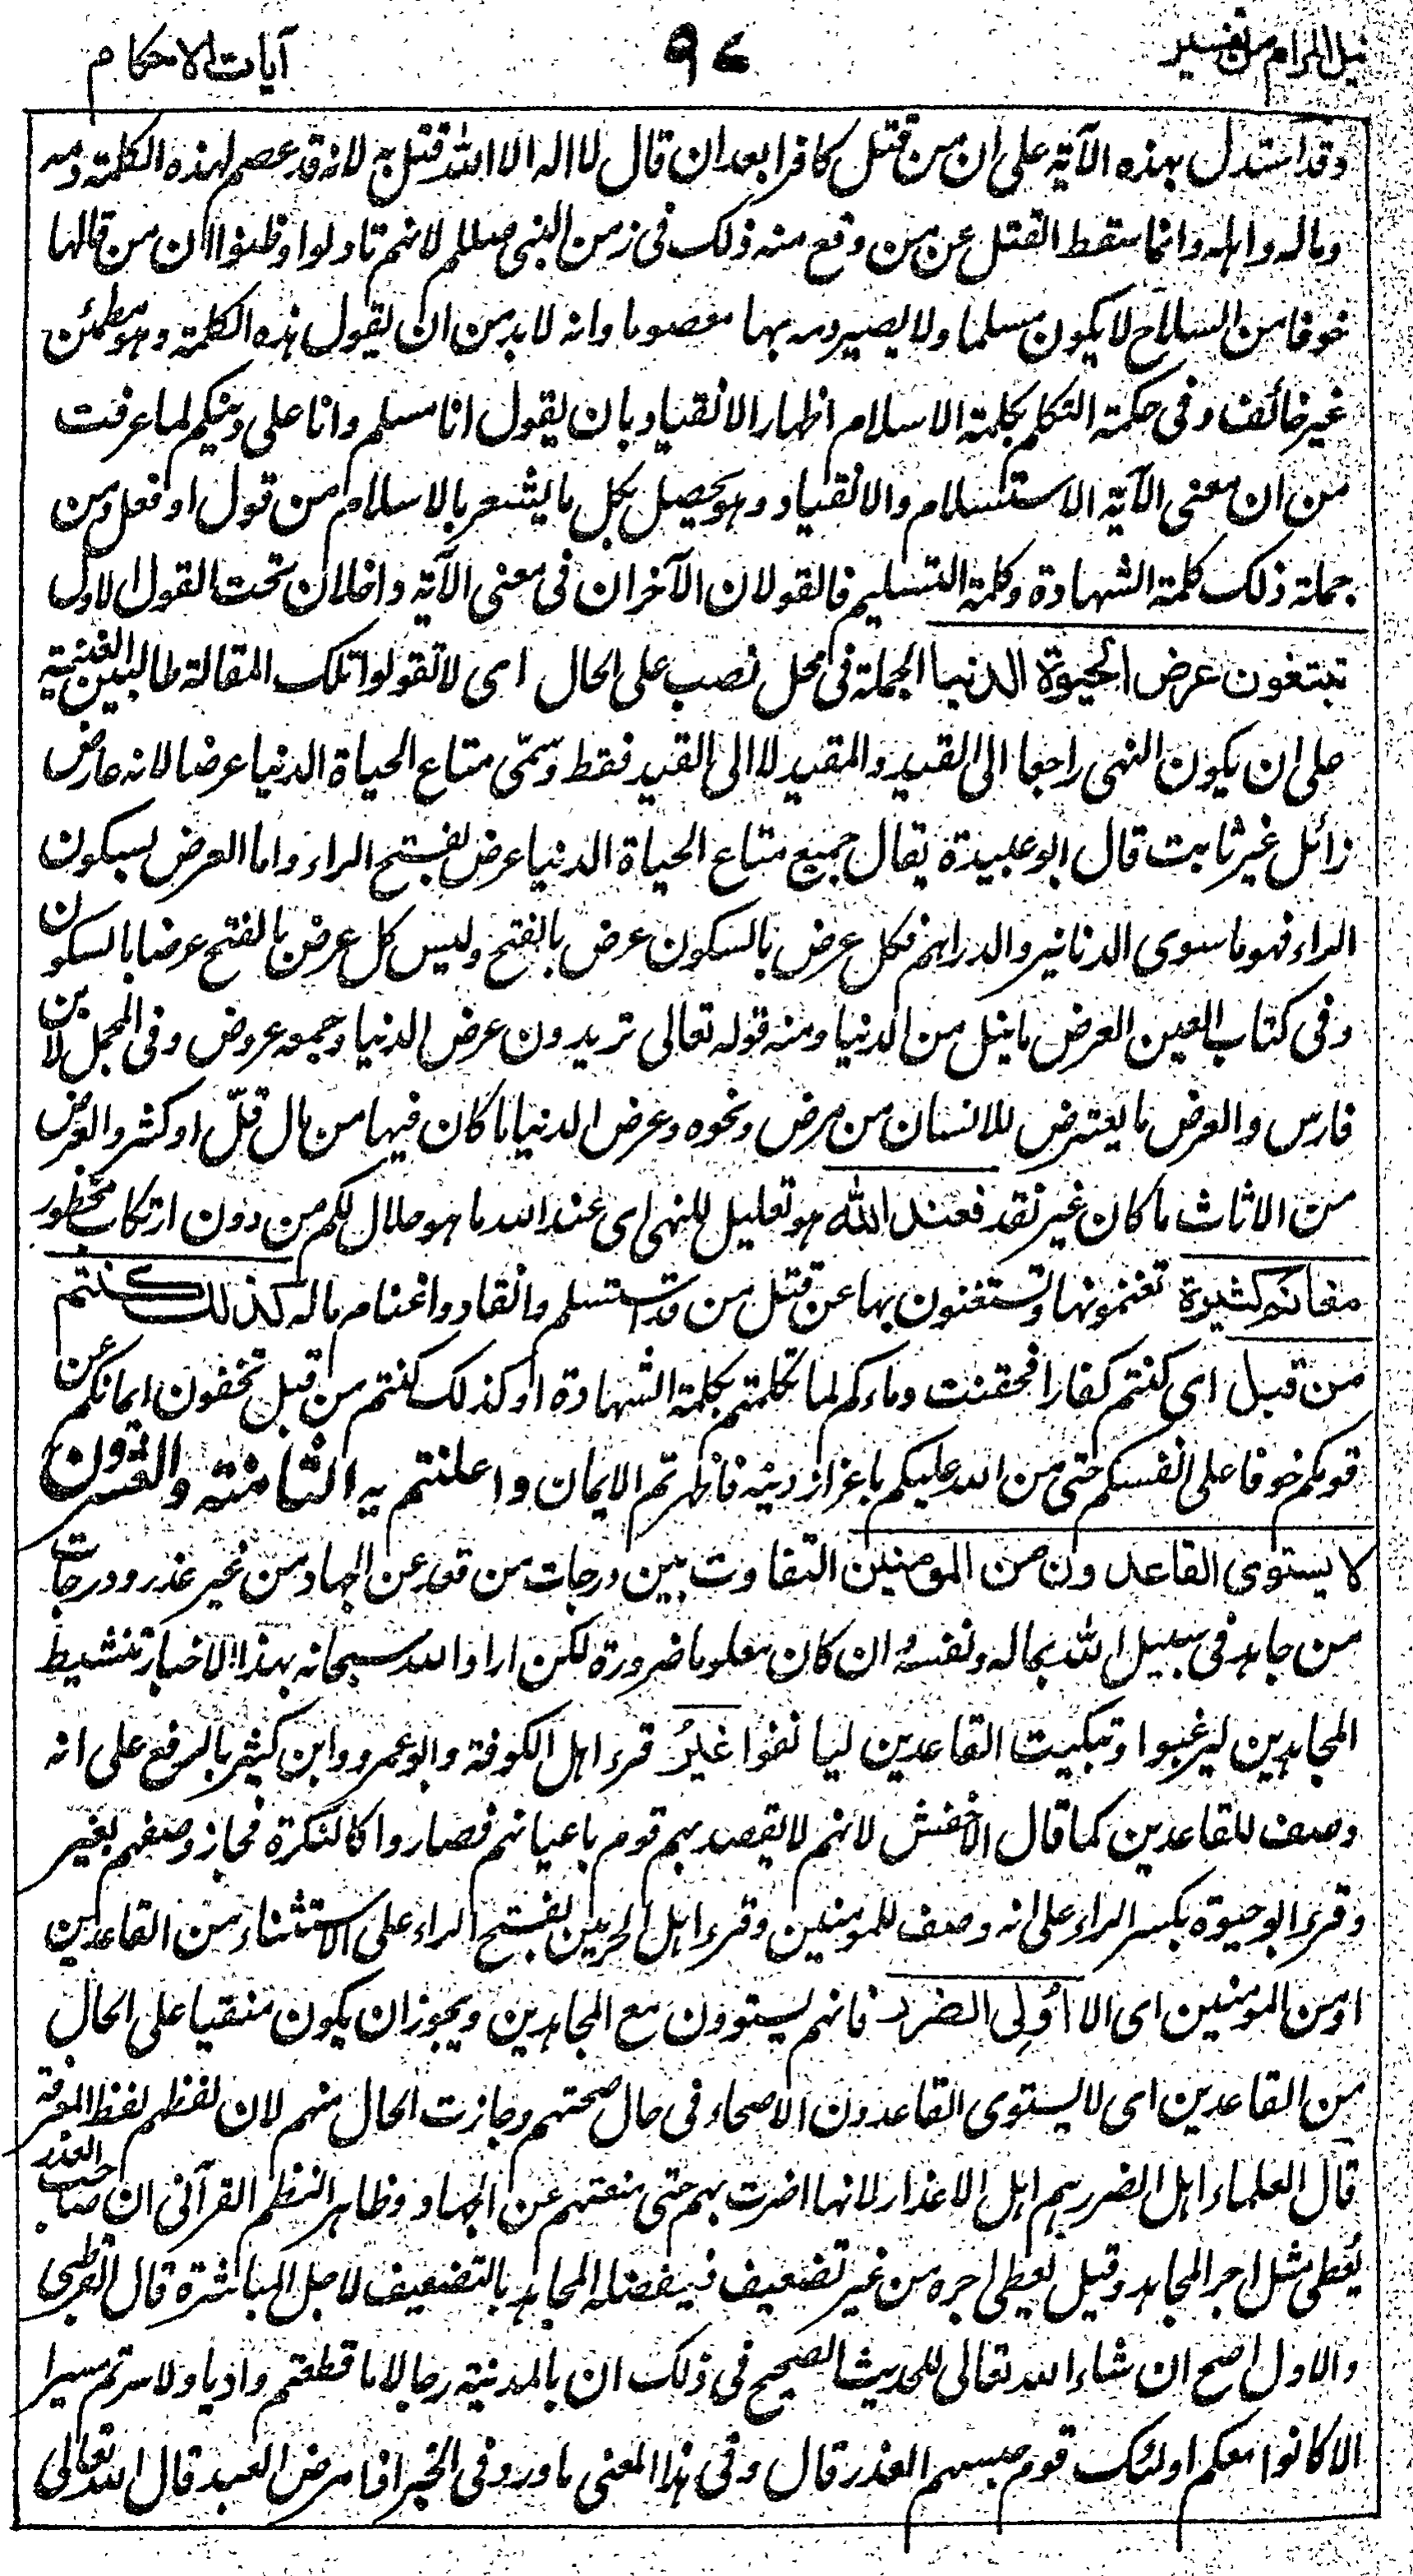 نيل المرام من تفسير
٩٧
آيات الاحكام
وقد استدل بهذه الآية على ان من قتل كافرا بعد ان قال لا اله الا الله قتل به لانه قد عصم بهذه الكلمة دمه
وماله واهله وانما سقط القتل عن من وقع منه ذلك فى زمن النبى صلعم لانهم تاولوا وظنوا ان من قالها
خوفا من السلاح لا يكون مسلما ولا يصير دمه بها معصوما وانه لا بد من ان يقول هذه الكلمة وهو مطمئن
غير خائف وفى حكمة التكلم بكلمة الاسلام اظهار الانقياد بان يقول انا مسلم وانا على دينكم لما عرفت
من ان معنى الآية الاستسلام والانقياد وهو يحصل بكل ما يشعر بالاسلام من قول او فعل ومن
جملة ذلك كلمة الشهادة وكلمة التسليم فالقولان الآخران فى معنى الآية داخلان تحت القول الاول
تبتغون عرض الحيوة الدنيا الجملة فى محل نصب على الحال اى لا تقولوا تلك المقالة طالبين الغنيمة
على ان يكون النهى راجعا الى القيد والمقيد لا الى القيد فقط وسمّى متاع الحياة الدنيا عرضا لانه عارض
زائل غير ثابت قال ابو عبيدة يقال جميع متاع الحياة الدنيا عرض بفتح الراء واما العرض بسكون
الراء فهو ما سوى الدنانير والدراهم فكل عرض بالسكون عرض بالفتح وليس كل عرض بالفتح عرضا بالسكون
وفى كتاب العين العرض ما نيل من الدنيا ومنه قوله تعالى تريدون عرض الدنيا وجمعه عروض وفى المجمل لابن
فارس والعرض ما يعترض للانسان من مرض ونحوه وعرض الدنيا ما كان فيها من مال قلّ او كثر والعرض
من الاثاث ما كان غير نقد فعند الله هو تعليل للنهى اى عند الله ما هو حلال لكم من دون ارتكاب محظور
مغانم كثيرة تغنمونها وتستغنون بها عن قتل من قد استسلم وانقاد واغتنام ماله كذلك كنتم
من قبل اى كنتم كفارا فحقنت دماءكم لما تكلمتم بكلمة الشهادة او كذلك كنتم من قبل تخفون ايمانكم عن
قومكم خوفا على انفسكم حتى من الله عليكم باعزاز دينه فاظهرتم الايمان واعلنتم به الثامنة والعشرون
لا يستوى القاعدون من المومنين التفاوت بين درجات من قعد عن الجهاد من غير عذر ودرجات
من جاهد فى سبيل الله بماله ونفسه ان كان معلوما ضرورة لكن اراد الله سبحانه بهذا الاخبار تنشيط
المجاهدين ليرغبوا وتبكيت القاعدين ليانفوا غيرُ قرء اهل الكوفة وابو عمرو وابن كثير بالرفع على انه
وصف للقاعدين كما قال الاخفش لانهم لا يقصد بهم قوم باعيانهم فصاروا كالنكرة فجاز وصفهم بغير
وقرء ابو حيوة بكسر الراء على انه وصف للمومنين وقرء اهل الحرمين بفتح الراء على الاستثناء من القاعدين
او من المومنين اى الا اُولِى الضرر فانهم يستوون مع المجاهدين ويجوز ان يكون منتقيا على الحال
من القاعدين اى لا يستوى القاعدون الاصحاء فى حال صحتهم وجازت الحال منهم لان لفظهم لفظ المعرفة
قال العلماء اهل الضرر هم اهل الاعذار لانها اضرت بهم حتى منعتهم عن الجهاد وظاهر النظم القرآنى ان صاحب العذر
يُعطى مثل اجر المجاهد وقيل يعطى اجره من غير تضعيف فيفضله المجاهد بالتضعيف لاجل المباشرة قال القرطبى
والاول اصح ان شاء الله تعالى للحديث الصحيح فى ذلك ان بالمدينة رجالا ما قطعتم واديا ولا سرتم مسيرا
الا كانوا معكم اولئك قوم حبسهم العذر قال وفى هذا المعنى ما ورد فى الخبر اذا مرض العبد قال الله تعالى